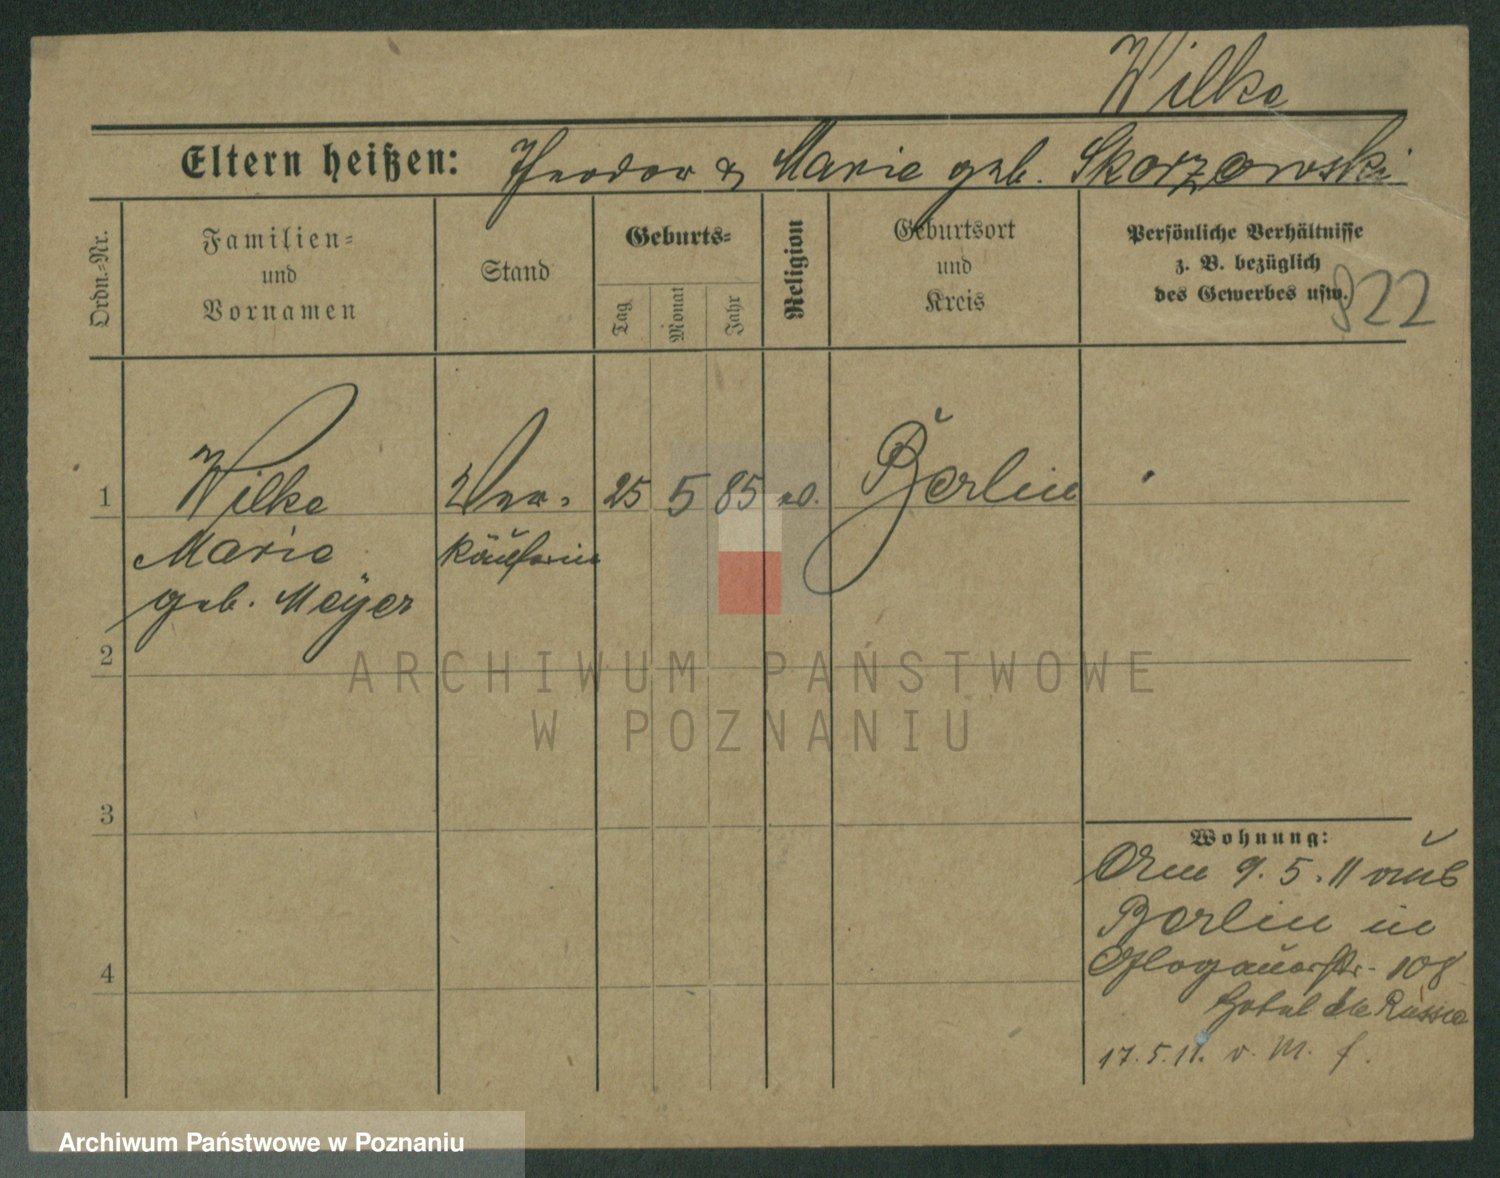 Wilke
Eltern heißen: Theodor & Marie geb. Skorzewski
Ordn.-Nr.
Familien-
und
Vornamen
Stand
Geburts-
Tag
Monat
Jahr
Religion
Geburtsort
und
Kreis
Persönliche Verhältnisse
z. B. bezüglich
des Gewerbes usw.
922
1 Wilke Ver- 25 5 85 Berlin
Marie käuferin
geb. Meyer
2
3
4
Wohnung:
Am 9. 5. 11 aus
Berlin in
Glogauerstr. 108
Hotel de Russie
17. 5. 11. v. M. f.
ARCHIWUM PAŃSTWOWE
W POZNANIU
Archiwum Państwowe w Poznaniu